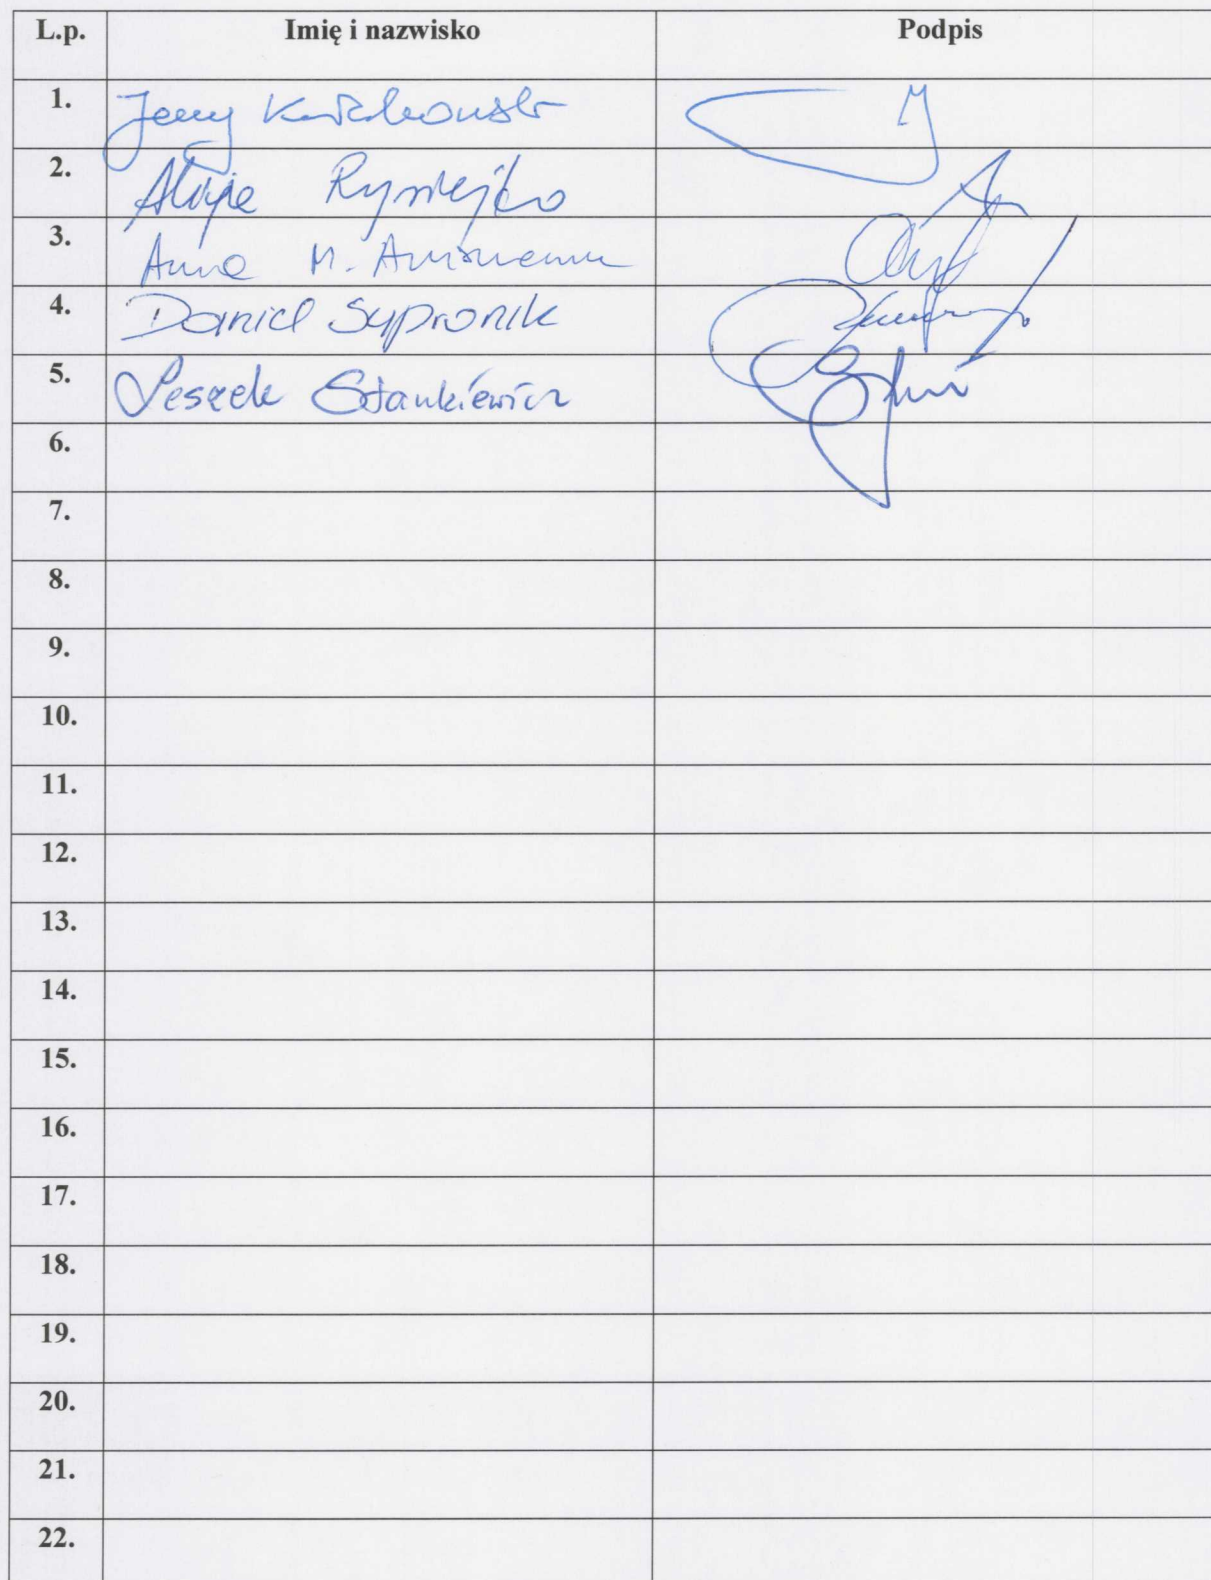 L.p. Imię i nazwisko Podpis
1. Jerzy
2. Alicja Rymiejko
3. Anna M.
4. Daniel Supronik
5. Leszek Stankiewicz
6.
7.
8.
9.
10.
11.
12.
13.
14.
15.
16.
17.
18.
19.
20.
21.
22.